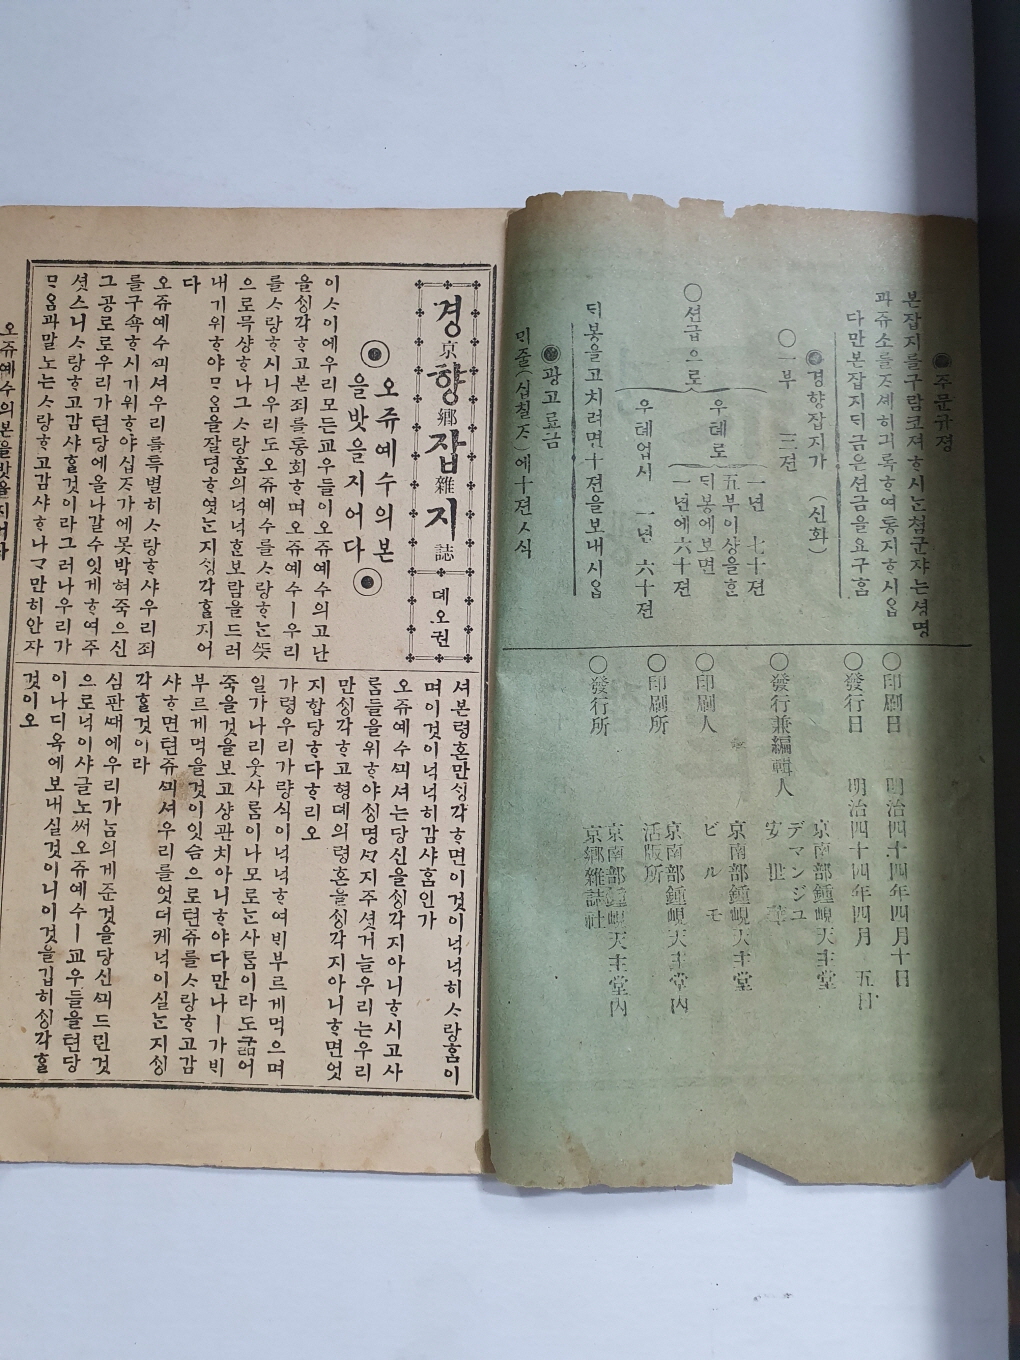 ◉주문규졍
본잡지를구람코져ᄒᆞ시ᄂᆞᆫ쳠군쟈ᄂᆞᆫ셩명
과쥬소를ᄌᆞ셰히긔록ᄒᆞ여통지ᄒᆞ시ᄋᆞᆸ
다만본잡지ᄃᆡ금은션금을요구ᄒᆞᆷ
◉경향잡지가 (신화)
○一부 三젼
○션급으로
우톄로
一년 七十젼
五부이샹을ᄒᆞᆫ
ᄃᆡ봉에보면
一년에六十젼
우톄업시 一년 六十젼
ᄃᆡ봉을고치려면十젼을보내시ᄋᆞᆸ
◉광고료금
ᄆᆡ줄(십칠ᄌᆞ)에十젼ᄉᆞ식
○印刷日 明治四十四年四月十日
○發行日 明治四十四年四月 五日
○發行兼編輯人
京南部鍾峴天主堂
デマンジュ
安世華
○印刷人
京南部鍾峴天主堂
ビルモ
○印刷所
京南部鍾峴天主堂內
活版所
○發行所
京南部鍾峴天主堂內
京鄕雜誌社
경京향鄕잡雜지誌 뎨오권
◉오쥬예수의본
을밧을지어다◉
이ᄉᆞ이에우리모든교우들이오쥬예수의고난
을ᄉᆡᆼ각ᄒᆞ고본죄를통회ᄒᆞ며오쥬예수ㅣ우리
를ᄉᆞ랑ᄒᆞ시니우리도오쥬예수를ᄉᆞ랑ᄒᆞᄂᆞᆫᄯᅳᆺ
으로믁샹ᄒᆞ나그ᄉᆞ랑ᄒᆞᆷ의넉넉ᄒᆞᆫ보람을드러
내기위ᄒᆞ야ᄆᆞᄋᆞᆷ을잘뎡ᄒᆞ엿ᄂᆞᆫ지ᄉᆡᆼ각ᄒᆞᆯ지어
다
오쥬예수ᄭᅴ셔우리를특별히ᄉᆞ랑ᄒᆞ샤우리죄
를구쇽ᄒᆞ시기위ᄒᆞ야십ᄌᆞ가에못박혀죽으신
그공로로우리가텬당에올나갈수잇게ᄒᆞ여주
셧스니ᄉᆞ랑ᄒᆞ고감샤ᄒᆞᆯ것이라그러나우리가
ᄆᆞᄋᆞᆷ과말노ᄂᆞᆫᄉᆞ랑ᄒᆞ고감샤ᄒᆞ나ᄀᆞ만히안자
셔본령혼만ᄉᆡᆼ각ᄒᆞ면이것이넉넉히ᄉᆞ랑ᄒᆞᆷ이
며이것이넉넉히감샤ᄒᆞᆷ인가
오쥬예수ᄭᅴ셔는당신을ᄉᆡᆼ각지아니ᄒᆞ시고사
ᄅᆞᆷ들을위ᄒᆞ야ᄉᆡᆼ명ᄭᆞ지주셧거늘우리는우리
만ᄉᆡᆼ각ᄒᆞ고형뎨의령혼을ᄉᆡᆼ각지아니ᄒᆞ면엇
지합당ᄒᆞ다ᄒᆞ리오
가령우리가량식이넉넉ᄒᆞ여ᄇᆡ부르게먹으며
일가나리웃사ᄅᆞᆷ이나모로ᄂᆞᆫ사ᄅᆞᆷ이라도굶어
죽을것을보고샹관치아니ᄒᆞ야다만나ㅣ가ᄇᆡ
부르게먹을것이잇슴으로텬쥬를ᄉᆞ랑ᄒᆞ고감
샤ᄒᆞ면텬쥬ᄭᅴ셔우리를엇더케넉이실ᄂᆞᆫ지ᄉᆡᆼ
각ᄒᆞᆯ것이라
심판ᄯᅢ에우리가ᄂᆞᆷ의게준것을당신ᄭᅴ드린것
으로넉이샤글노써오쥬예수ㅣ교우들을텬당
이나디옥에보내실것이니이것을깁히ᄉᆡᆼ각ᄒᆞᆯ
것이오
오쥬예수의본을밧을지어다